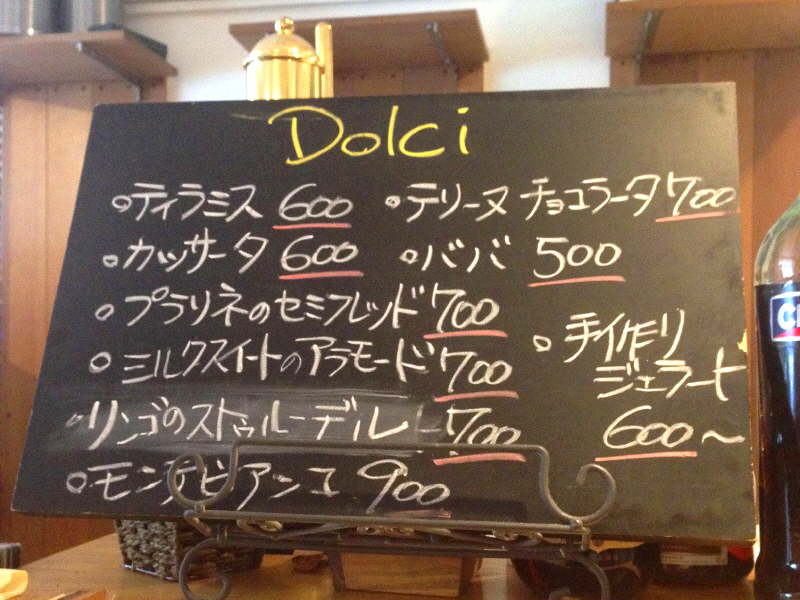 Dolci
ティラミス 600
カッサータ 600
プラリネのセミフレッド 700
ミルクスイートのアラモード 700
リンゴのストゥルーデル 700
モンテビアンコ 900
テリーヌ チョコラータ 700
ババ 500
手作り
ジェラート
600〜